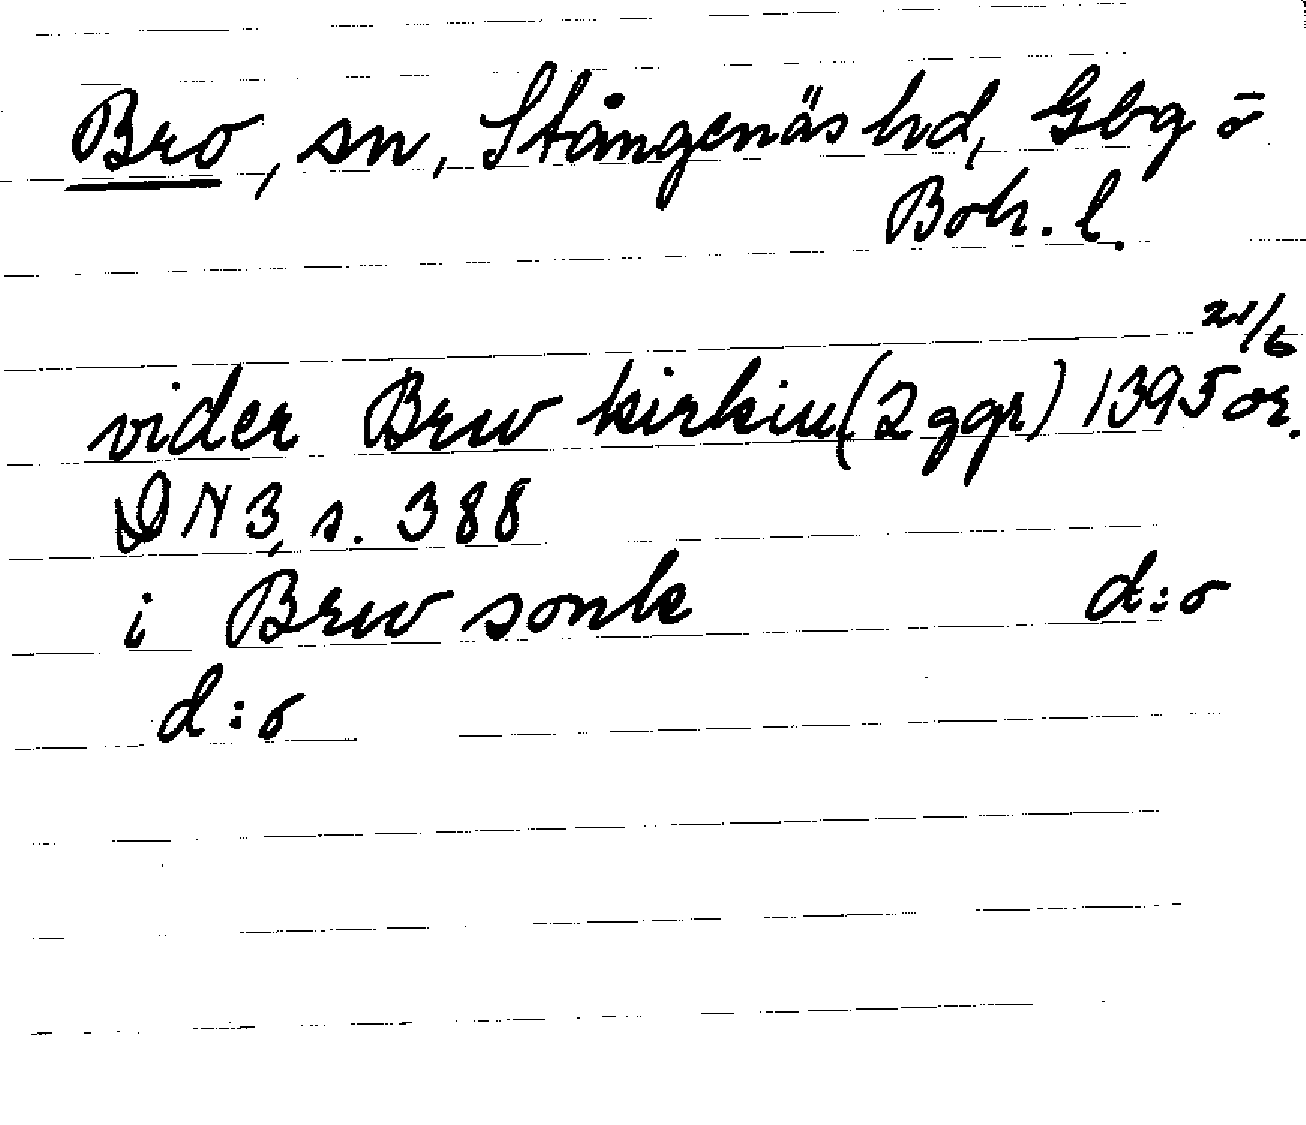 Bro, sn, Stångenäs hd, Gbg o
Boh. l.
vider Brw kirkiu (2 ggr) 1395 21/6 or.
DN 3, s. 388
i Brw sonk d:o
d:o